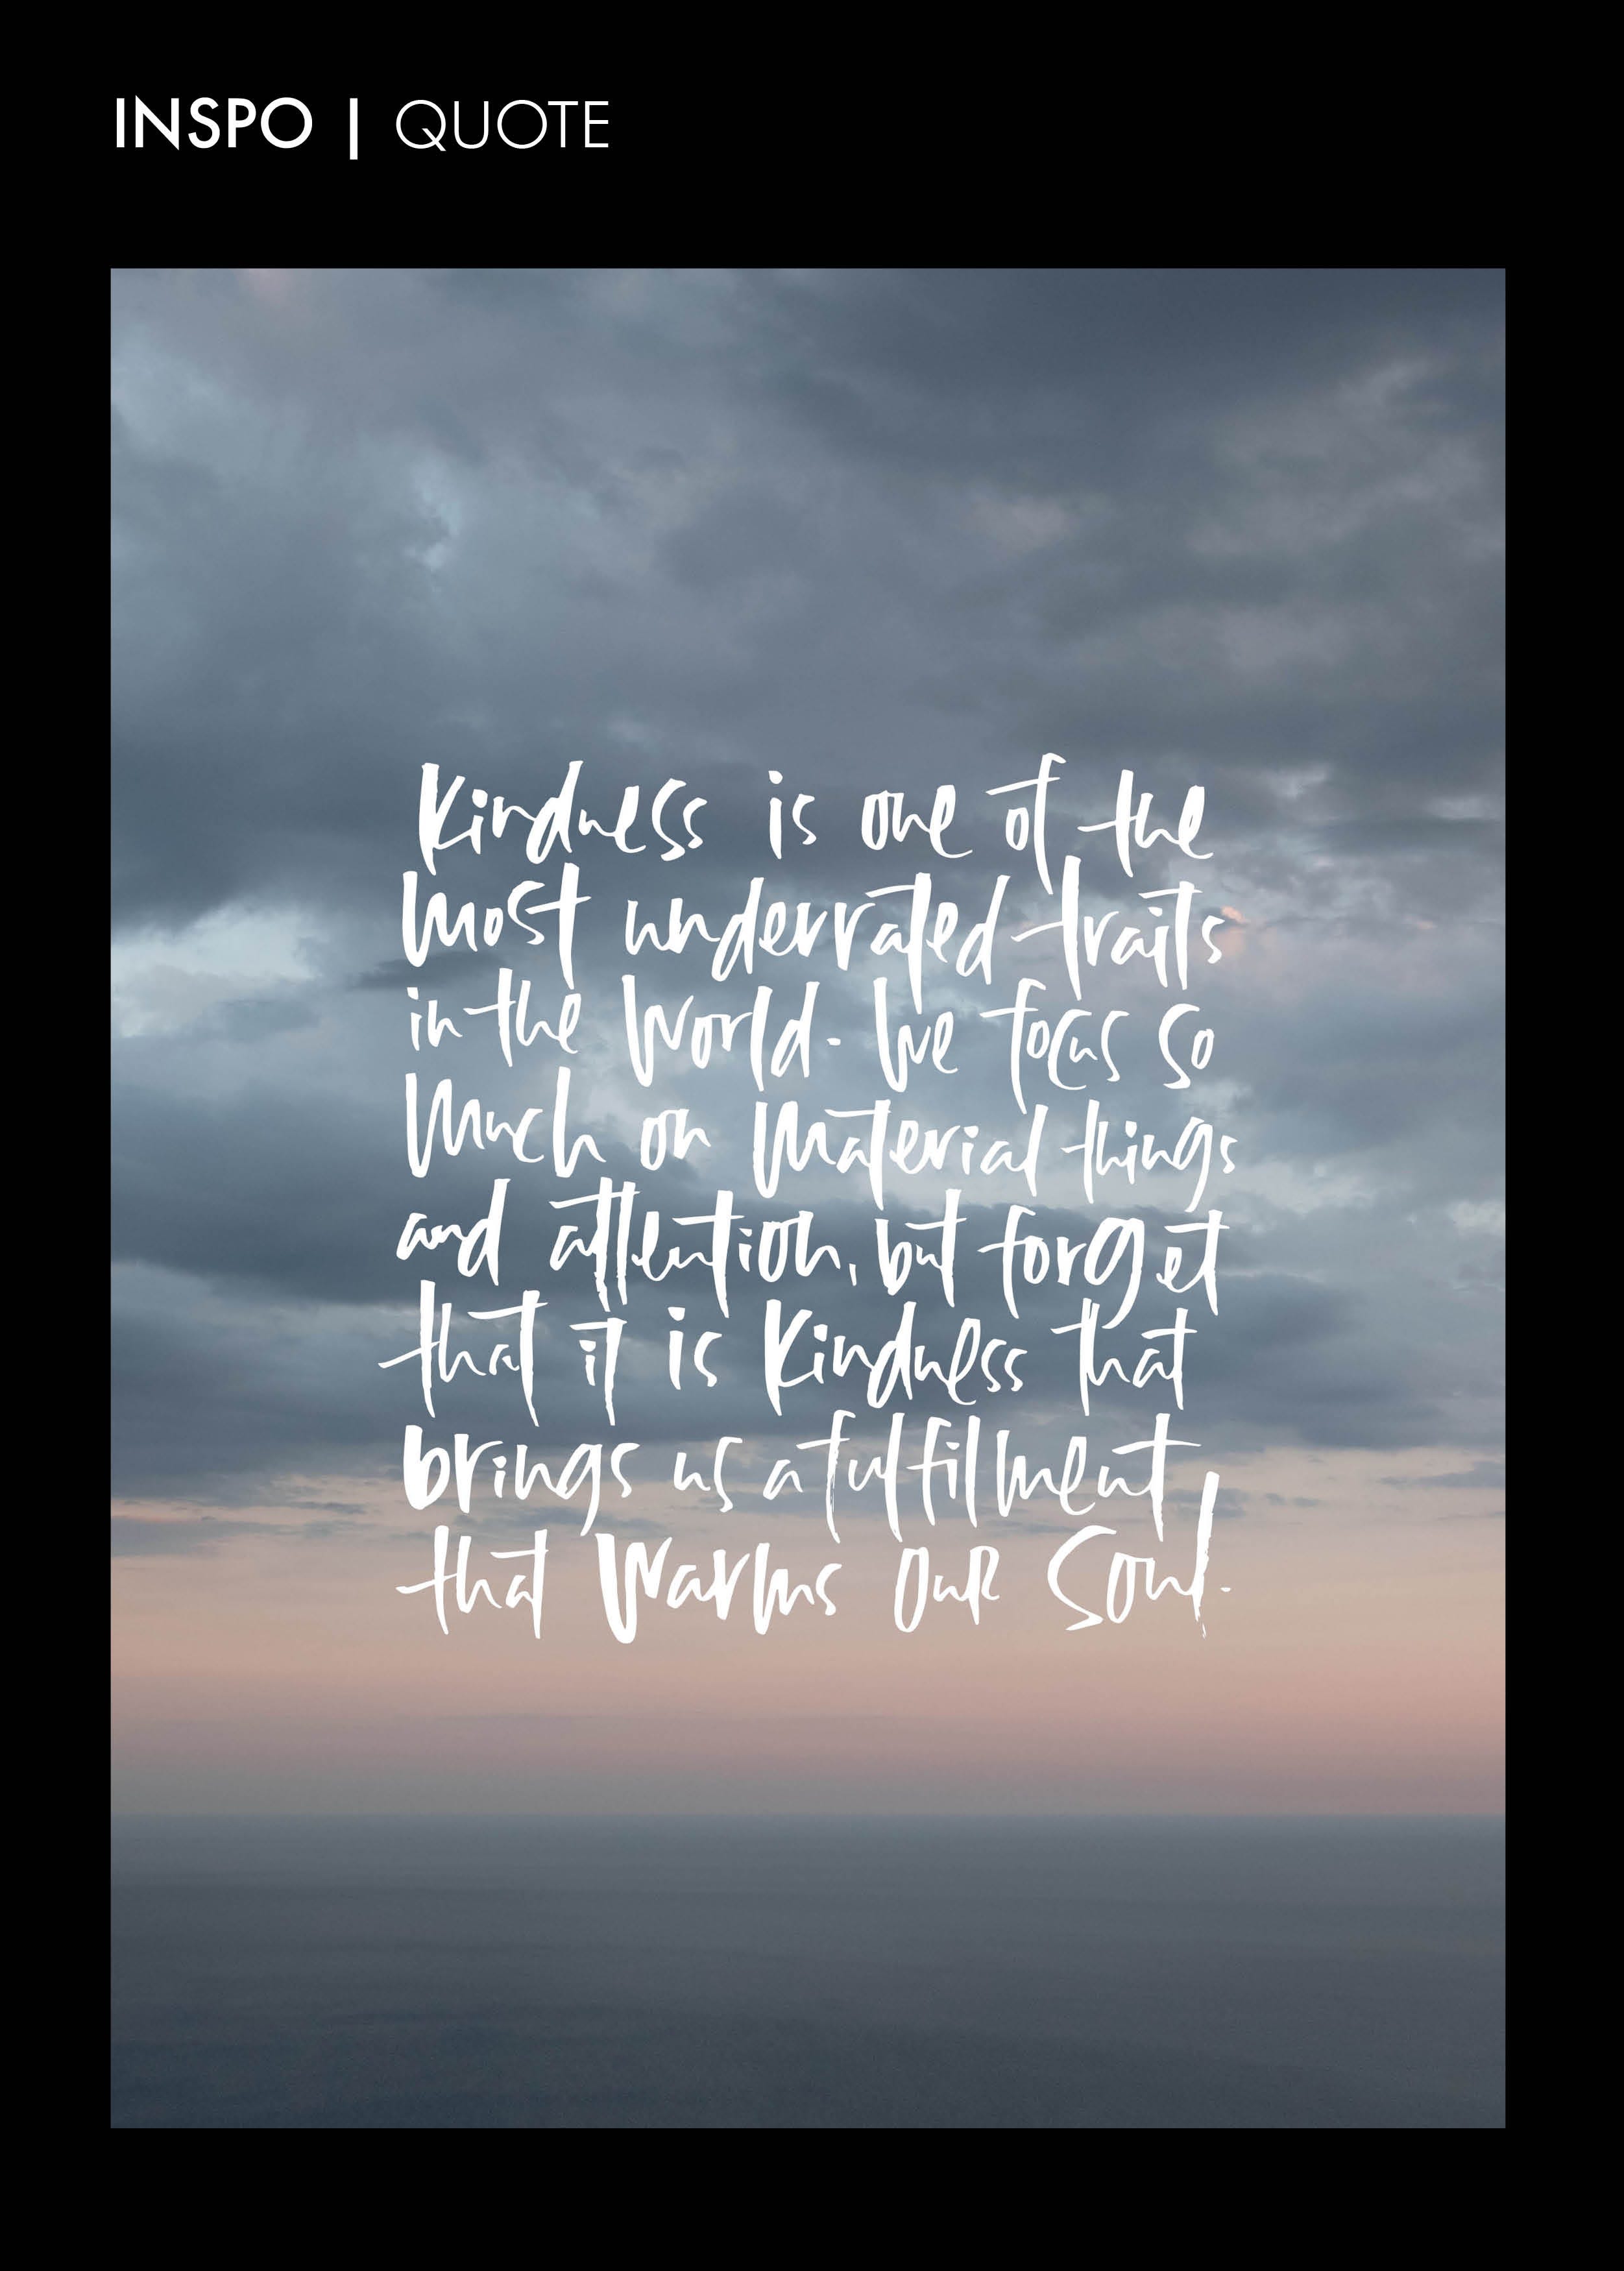 INSPO | QUOTE
Kindness is one of the
most underrated traits
in the World. We focus so
Much on Material things
and attention, but forget
that it is kindness that
brings us a fulfilment
that Warms OuR Soul.